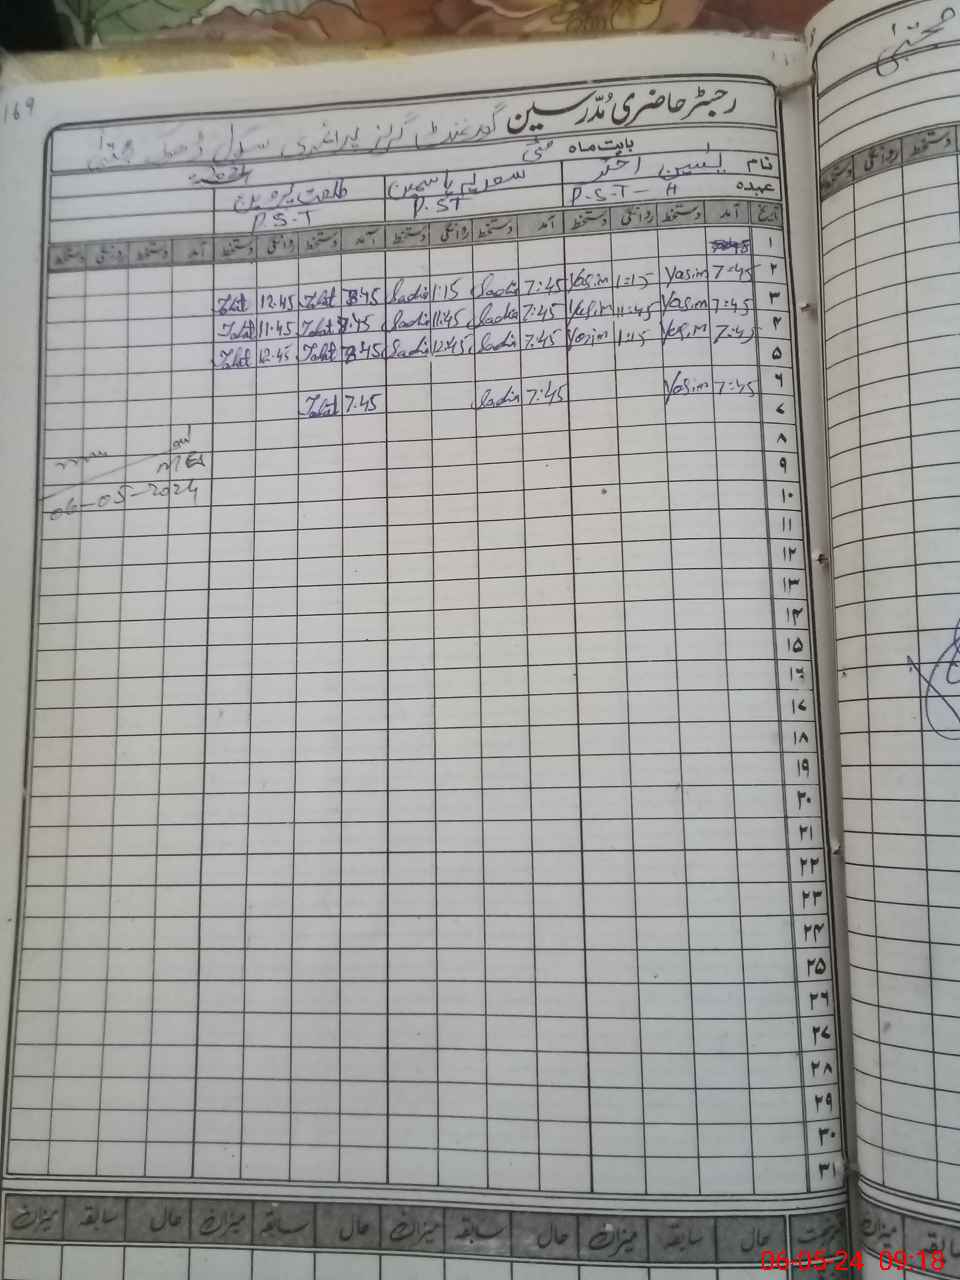 169
رجسٹر حاضری مُدّرسین گورنمنٹ گرلز پرائمری سکول ڈھوک
بابت ماہ مئی 2024
نام یٰسمین اختر سعدیہ یاسمین طلعت پروین
عہدہ P.S.T - H P.ST P.S.T
تاریخ آمد دستخط روانگی دستخط آمد دستخط روانگی دستخط آمد دستخط روانگی دستخط آمد دستخط روانگی دستخط
۱
۲ 7:45 Yasim 1:15 Yasim 7:45 Sadia 1:15 Sadia 8:45 Talat 12:45 Talat
۳ 7:45 Yasim 11:45 Yasim 7:45 Sadia 11:45 Sadia 7:45 Talat 11:45 Talat
۴ 7:45 Yasim 1:15 Yasim 7:45 Sadia 12:45 Sadia 7:45 Talat 12:45 Talat
۵
۶ 7:45 Yasim 7:45 Sadia 7:45 Talat
۷
۸
۹
06-05-2024
۱۰
۱۱
۱۲
۱۳
۱۴
۱۵
۱۶
۱۷
۱۸
۱۹
۲۰
۲۱
۲۲
۲۳
۲۴
۲۵
۲۶
۲۷
۲۸
۲۹
۳۰
۳۱
حال سابقہ میزان حال سابقہ میزان حال سابقہ میزان حال سابقہ میزان
دستخط روانگی دستخط
میزان سابقہ
06-05-24 09:18